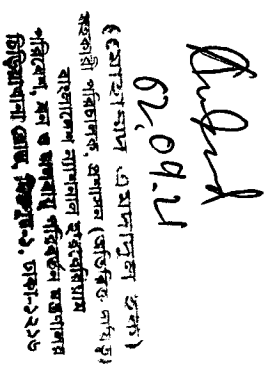 (মোহাম্মদ এনামুল হক)
সহকারী পরিচালক, প্রশাসন (অতিরিক্ত দায়িত্ব)
বাংলাদেশ ন্যাশনাল হারবেরিয়াম
পরিবেশ, বন ও জলবায়ু পরিবর্তন মন্ত্রণালয়
চিড়িয়াখানা রোড, মিরপুর-১, ঢাকা-১২১৬